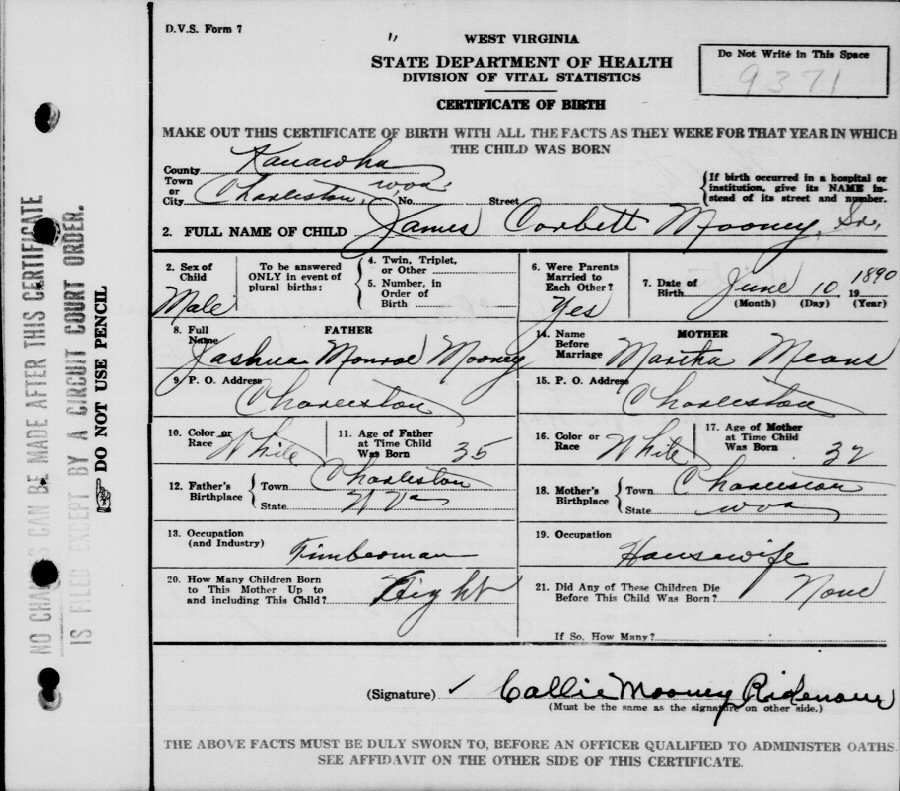 D.V.S. Form 7
WEST VIRGINIA
STATE DEPARTMENT OF HEALTH
DIVISION OF VITAL STATISTICS
CERTIFICATE OF BIRTH
Do Not Write in This Space
9371
MAKE OUT THIS CERTIFICATE OF BIRTH WITH ALL THE FACTS AS THEY WERE FOR THAT YEAR IN WHICH
THE CHILD WAS BORN
County Kanawha
Town or City Charleston, W.Va. No. Street
If birth occurred in a hospital or
institution, give its NAME in-
stead of its street and number.
2. FULL NAME OF CHILD James Corbett Mooney, Sr.
2. Sex of Child Male
To be answered
ONLY in event of
plural births:
4. Twin, Triplet,
or Other
5. Number, in
Order of
Birth
6. Were Parents
Married to
Each Other?
Yes
7. Date of Birth June 10, 19 1890
(Month) (Day) (Year)
FATHER
8. Full Name Jashua Monroe Mooney
MOTHER
14. Name
Before
Marriage Martha Means
9. P. O. Address
Charleston
15. P. O. Address
Charleston
10. Color or
Race White
11. Age of Father
at Time Child
Was Born 35
16. Color or
Race White
17. Age of Mother
at Time Child
Was Born 32
12. Father's
Birthplace
Town Charleston
State W Va
18. Mother's
Birthplace
Town Charleston
State W Va
13. Occupation
(and Industry) Timberman
19. Occupation
Housewife
20. How Many Children Born
to This Mother Up to
and including This Child? Eight
21. Did Any of These Children Die
Before This Child Was Born? None
If So, How Many?
(Signature) ✓ Callie Mooney Ridenour
(Must be the same as the signature on other side.)
THE ABOVE FACTS MUST BE DULY SWORN TO, BEFORE AN OFFICER QUALIFIED TO ADMINISTER OATHS.
SEE AFFIDAVIT ON THE OTHER SIDE OF THIS CERTIFICATE.
NO CHANGES CAN BE MADE AFTER THIS CERTIFICATE
IS FILED EXCEPT BY A CIRCUIT COURT ORDER.
DO NOT USE PENCIL